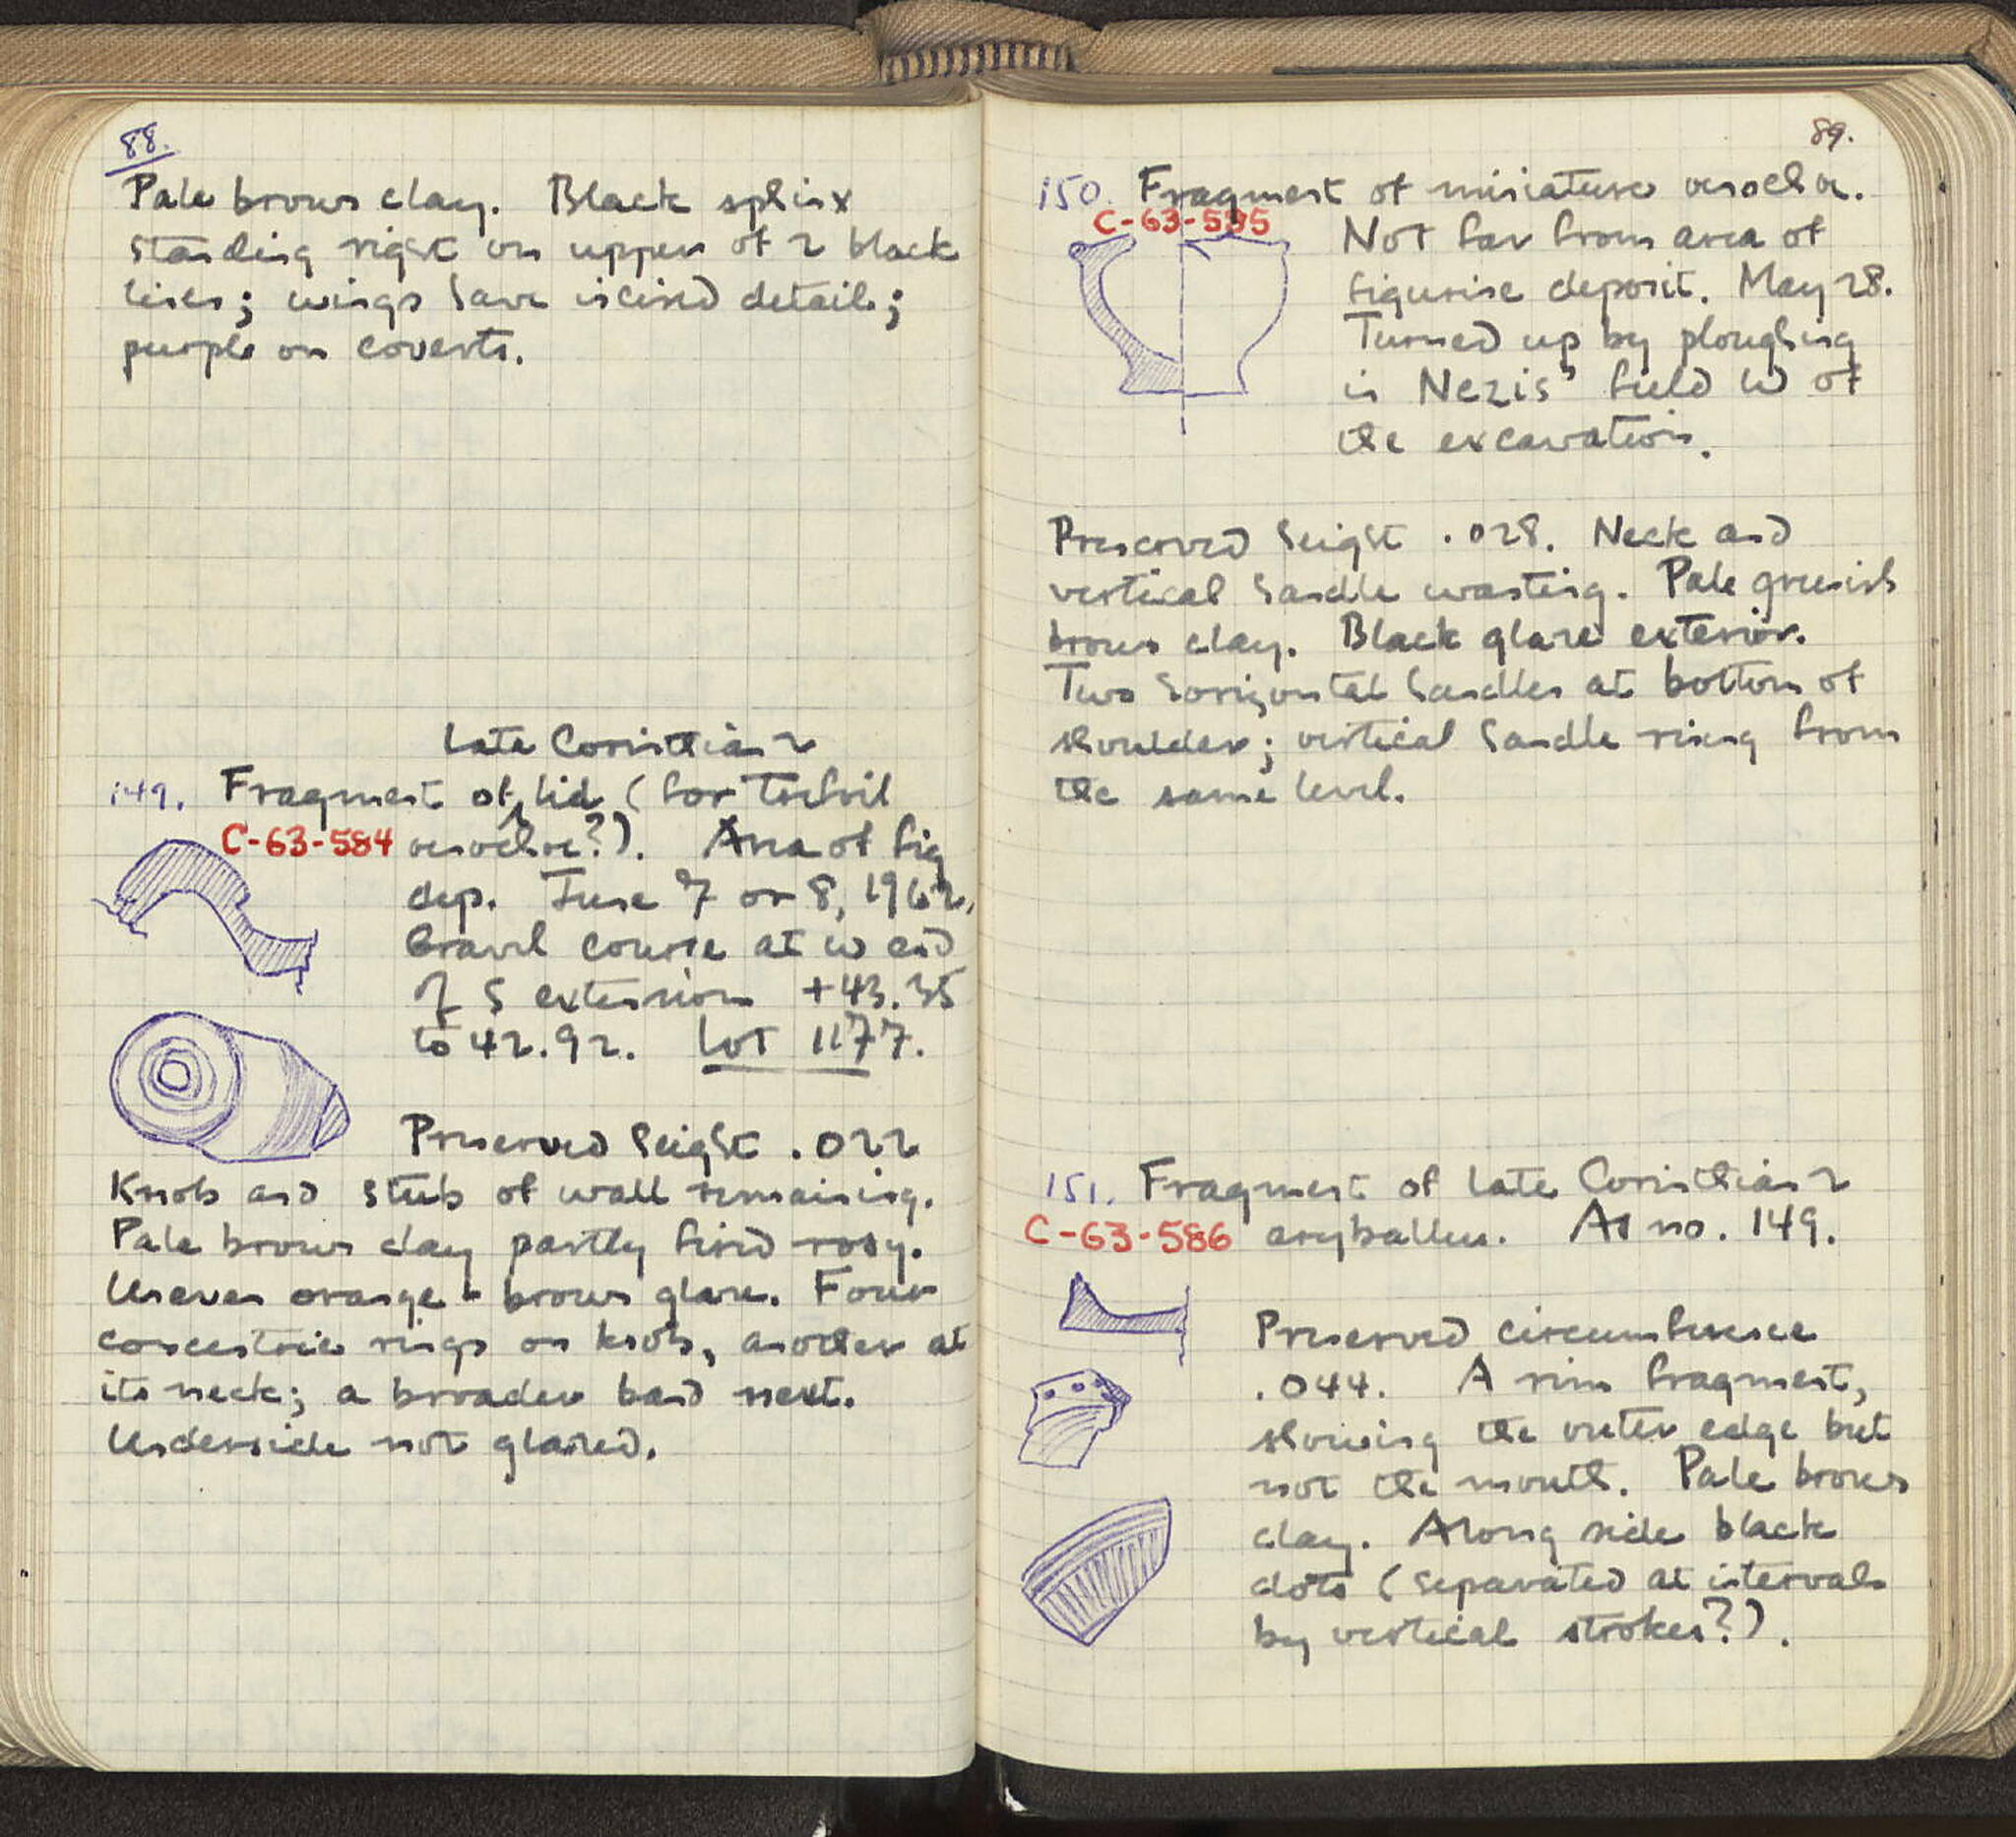 88.
Pale brown clay. Black sphinx
standing right on upper of 2 black
lines; wings have incised detail;
purple on coverts.
Late Corinthian 2
149. Fragment of lid (for trefoil
C-63-584 oinochoe?). Area of fig
dep. June 7 or 8, 1962,
Gravel course at W end
of S extension +43.35
to 42.92. Lot 1177.
Preserved height .022
Knob and stub of wall remaining.
Pale brown clay partly fired rosy.
Uneven orange-brown glaze. Four
concentric rings on knob, another at
its neck; a broader band next.
Underside not glazed.
89.
150. Fragment of miniature oinochoe.
C-63-585
Not far from area of
figurine deposit. May 28.
Turned up by ploughing
in Nezis' field W of
the excavation.
Preserved height .028. Neck and
vertical handle wanting. Pale greenish
brown clay. Black glaze exterior.
Two horizontal handles at bottom of
shoulder; vertical handle rising from
the same level.
151. Fragment of Late Corinthian 2
C-63-586 aryballos. As no. 149.
Preserved circumference
.044. A rim fragment,
showing the outer edge but
not the mouth. Pale brown
clay. Along side black
dots (separated at intervals
by vertical strokes?).